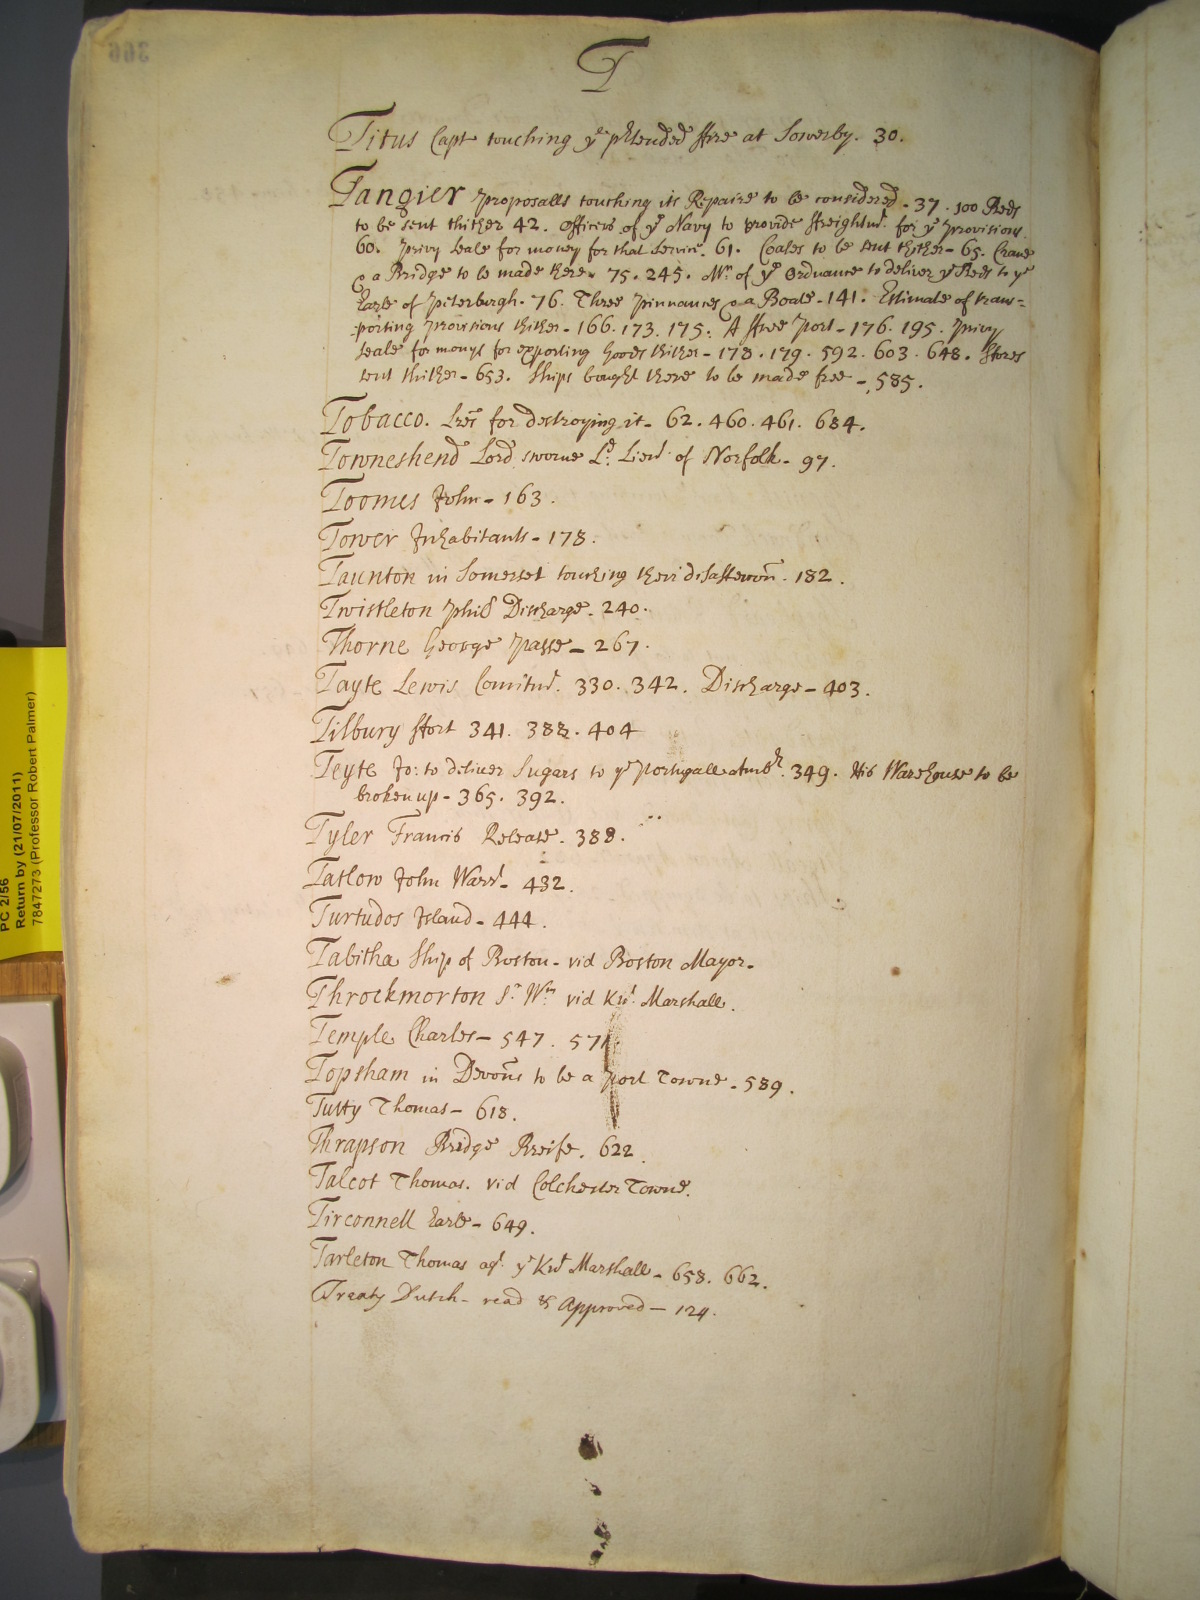 366
T
Titus Capt touching ye prtended ffire at Sowerby. 30.
Tangier proposalls touching its Repaire to be considered - 37. 100 Beds
to be sent thither 42. Officers of ye Navy to provide ffreight for ye provisions
60. privy seale for money for that service. 61. Coales to be sent thither - 65. Crane
& a Bridge to be made there. 75. 245. Mr of ye Ordnance to deliver ye Beds to ye
Earle of Peterburgh. 76. Three pinnances & a Boate - 141. Estimate of trans=
porting provisions thither - 166. 173. 175. A ffree port - 176. 195. privy
seale for monys for exporting goods thither - 178. 179. 592. 603. 648. Stores
sent thither - 653. Ships bought there to be made free - 585.
Tobacco. Lres for destroying it - 62. 460. 461. 684.
Towneshend Lord sworne Ld. Lieut of Norfolk - 97.
Toomes John - 163.
Tower Inhabitants - 178.
Taunton in Somerset touching their 182.
Twistleton Phil Discharge - 240.
Thorne George Passe - 267.
Tayte Lewis Comitmt. 330. 342. Discharge - 403.
Tilbury ffort 341. 382. 404
Teyte Jo: to deliver Sugars to ye Portugall Ambr. 349. His Warehouse to be
broken up - 365. 392.
Tyler Francis Release. 388.
Tatlow John Warrt - 432.
Turtudos Island - 444.
Tabitha Ship of Boston - vid Boston Mayor.
Throckmorton Sr Wm vid Knt Marshall.
Temple Charles - 547. 571.
Topsham in Devon to be a port Towne - 589.
Tutty Thomas - 618.
Thrapson Bridge Breife. 622.
Talcot Thomas. vid Colchester Towne.
Tirconnell Earle - 649.
Tarleton Thomas agt ye Knt Marshall - 658. 662.
Treaty Dutch - read & Approved - 124.
PC 2/56
Return by (21/07/2011)
7847273 (Professor Robert Palmer)